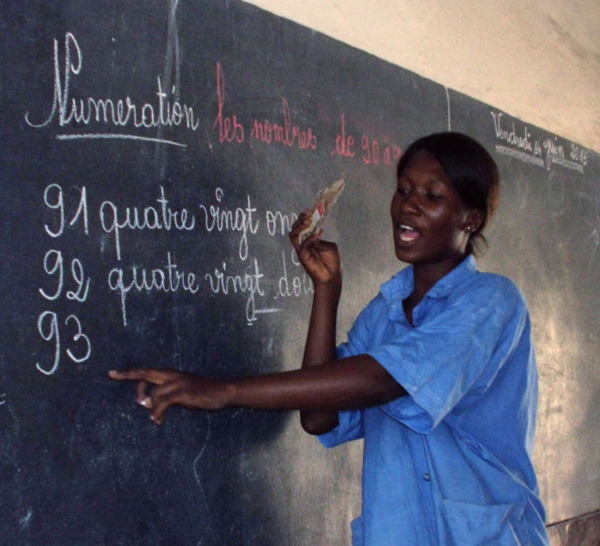 Numeration les nombres de 90 à
Vendredi 14 juin 2013
91 quatre vingt onze
92 quatre vingt
93